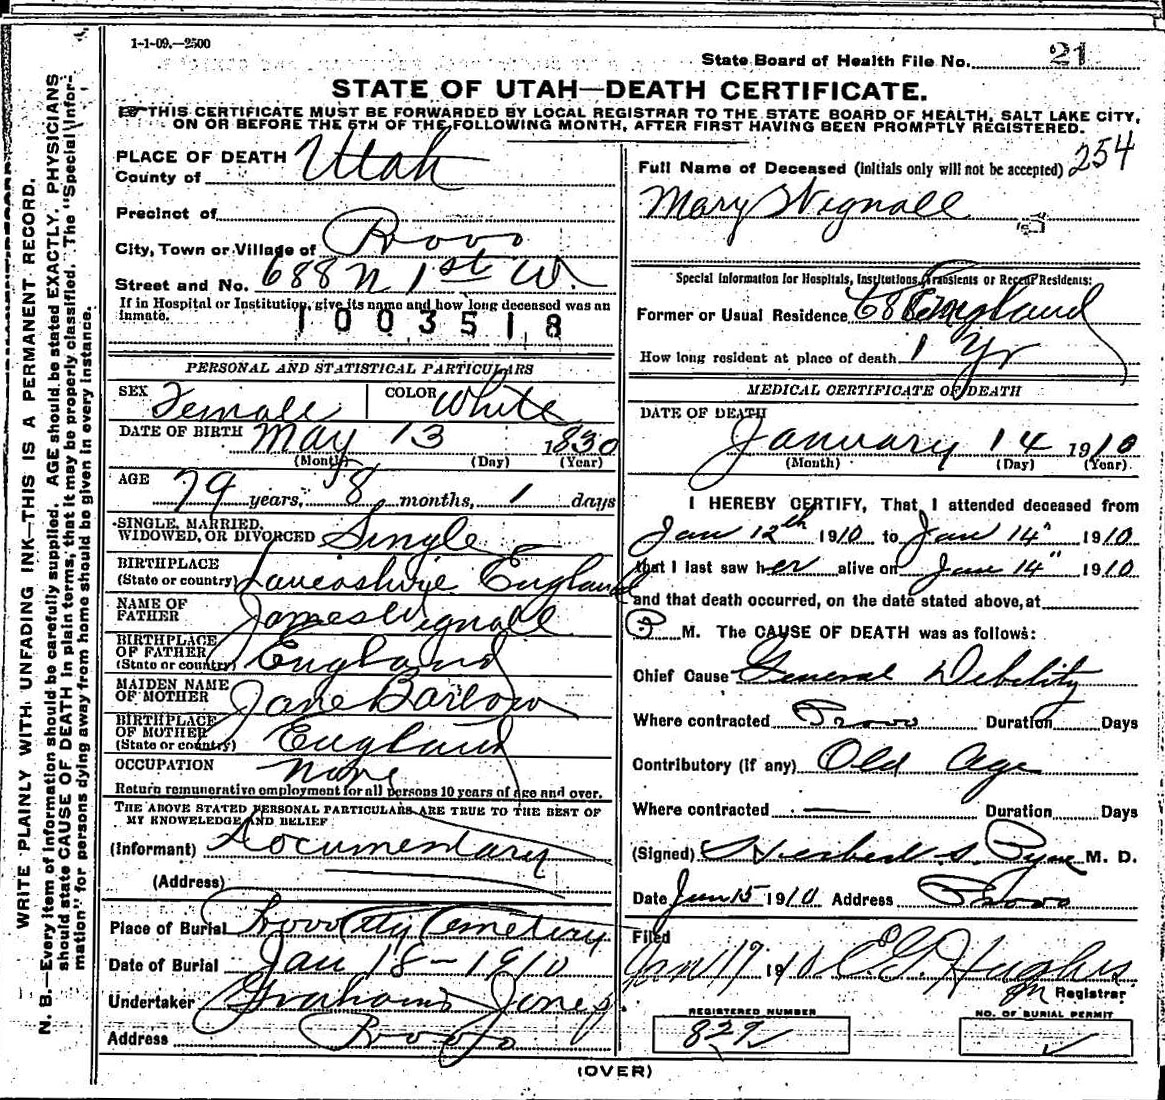 1-1-09.—2500
State Board of Health File No. 21
STATE OF UTAH—DEATH CERTIFICATE.
THIS CERTIFICATE MUST BE FORWARDED BY LOCAL REGISTRAR TO THE STATE BOARD OF HEALTH, SALT LAKE CITY,
ON OR BEFORE THE 5TH OF THE FOLLOWING MONTH, AFTER FIRST HAVING BEEN PROMPTLY REGISTERED.
WRITE PLAINLY WITH UNFADING INK—THIS IS A PERMANENT RECORD.
N. B.—Every item of information should be carefully supplied. AGE should be stated EXACTLY. PHYSICIANS
should state CAUSE OF DEATH in plain terms, that it may be properly classified. The "Special Infor-
mation" for persons dying away from home should be given in every instance.
PLACE OF DEATH
County of Utah
Precinct of
City, Town or Village of Provo
Street and No. 688 N 1st W.
If in Hospital or Institution, give its name and how long deceased was an
inmate.
1003518
PERSONAL AND STATISTICAL PARTICULARS
SEX Female COLOR White
DATE OF BIRTH May 13 1830
(Month) (Day) (Year)
AGE 79 years, 8 months, 1 days
SINGLE, MARRIED,
WIDOWED, OR DIVORCED Single
BIRTHPLACE
(State or country) Lancashire England
NAME OF
FATHER James Wignall
BIRTHPLACE
OF FATHER
(State or country) England
MAIDEN NAME
OF MOTHER Jane Barlow
BIRTHPLACE
OF MOTHER
(State or country) England
OCCUPATION None
Return remunerative employment for all persons 10 years of age and over.
THE ABOVE STATED PERSONAL PARTICULARS ARE TRUE TO THE BEST OF
MY KNOWELEDGE AND BELIEF
(Informant) Documentary
(Address)
Place of Burial Provo City Cemetery
Date of Burial Jan 18-1910
Undertaker Grahams Jones
Address Provo
254
Full Name of Deceased (initials only will not be accepted)
Mary Wignall
Special Information for Hospitals, Institutions, Transients or Recent Residents:
Former or Usual Residence England
How long resident at place of death 1 Yr
MEDICAL CERTIFICATE OF DEATH
DATE OF DEATH
January 14 1910
(Month) (Day) (Year)
I HEREBY CERTIFY, That I attended deceased from
Jan 12th 1910 to Jan 14" 1910
that I last saw her alive on Jan 14" 1910
and that death occurred, on the date stated above, at
P M. The CAUSE OF DEATH was as follows:
Chief Cause General Debility
Where contracted Provo Duration Days
Contributory (if any) Old Age
Where contracted — Duration Days
(Signed) Herbert S. Pyne M. D.
Date Jan 15 1910 Address Provo
Filed
Jan 17 1910 E G Hughes
Registrar
REGISTERED NUMBER
829
NO. OF BURIAL PERMIT
✓
(OVER)